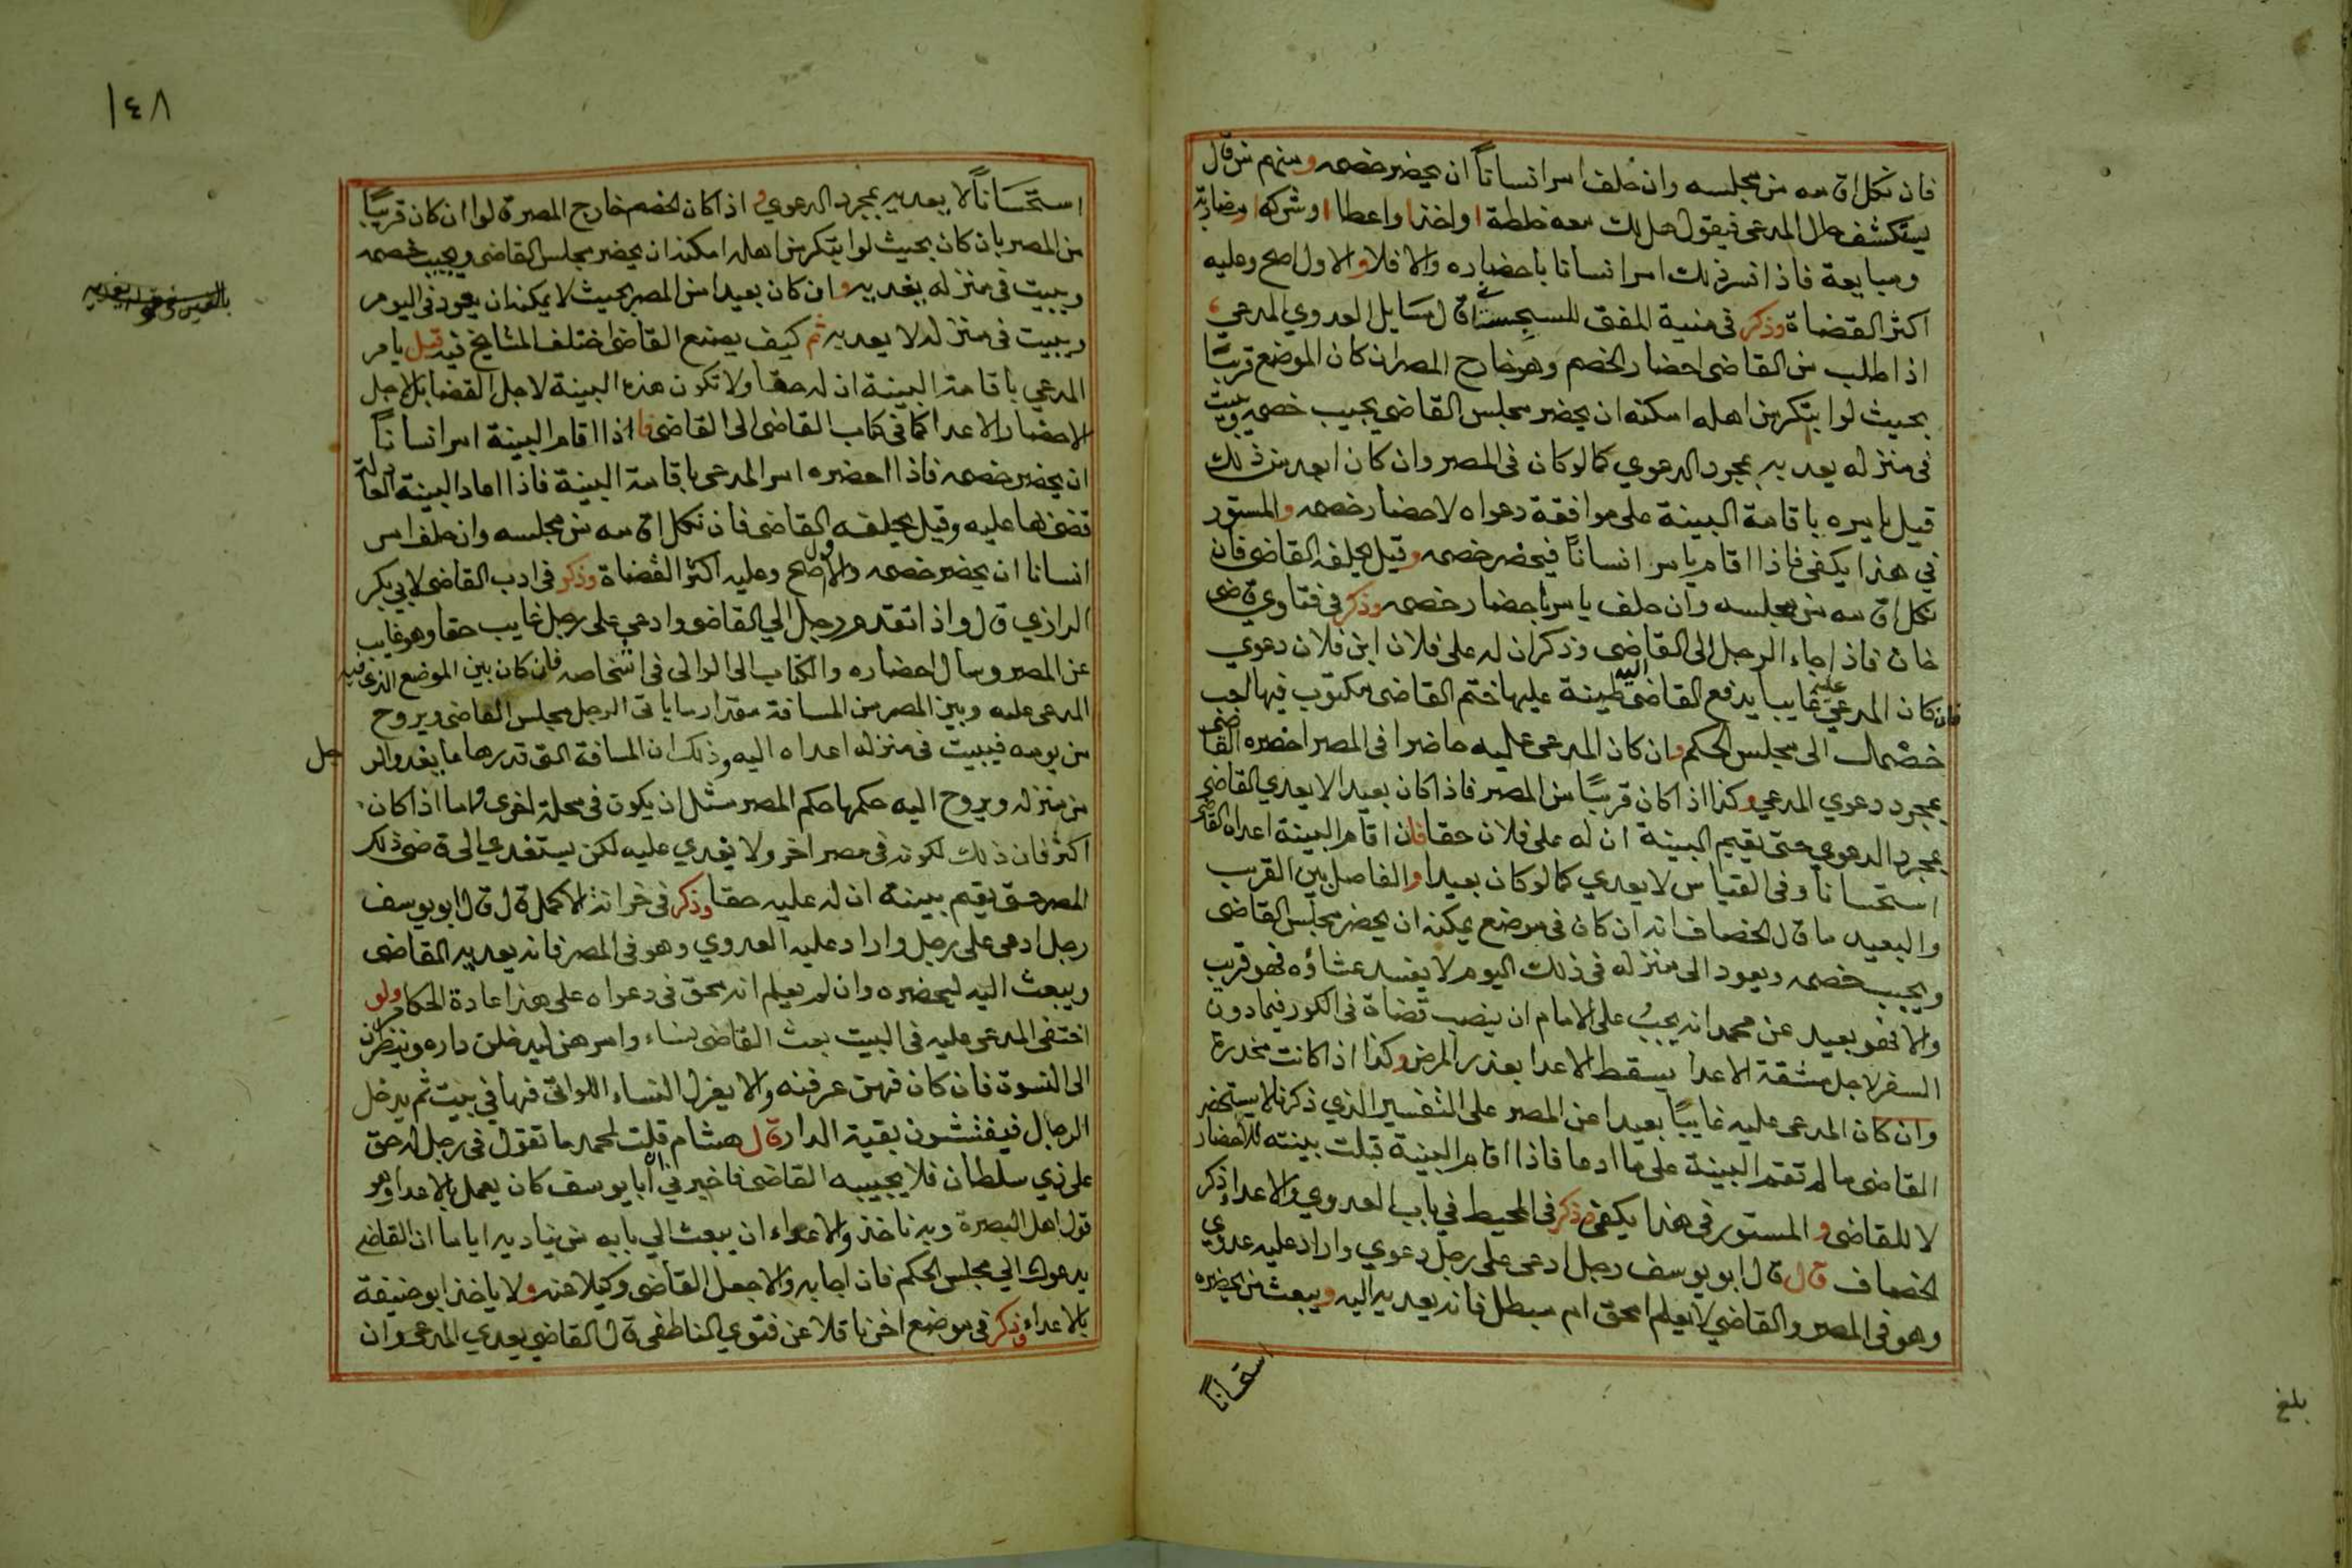 فان نكل اقامه من مجلسه وان حلف امر انساناً ان يحضر خصمه ومنهم من قال
يستكشف حال المدعى فيقول هل لك معه خلطة او اخذ او اعطا او شركه او مضاربة
ومبايعة فاذا فسر ذلك امر انسانا باحضاره والا فلا والاول اصح وعليه
اكثر القضاة وذكر في منية المفتى للسجستاني قال مسايل العدوي المدعي
اذا طلب من القاضى احضار الخصم وهو خارج المصر ان كان الموضع قريبًا
بحيث لو ابتكر من اهله امكنه ان يحضر مجلس القاضي يجيب خصمه ويبيت
في منزله يعديه بمجرد الدعوي كما لو كان فى المصر وان كان ابعد من ذلك
قيل يامره باقامة البينة على موافقة دعواه لاحضار خصمه والمستور
في هذا يكفى فاذا اقام يامر انساناً فيحضر خصمه وقيل يحلفه القاضى فان
نكل اقامه من مجلسه وان حلف يامر باحضار خصمه وذكر في فتاوي قاضى
خان فاذا جاء الرجل الى القاضى وذكر ان له على فلان ابن فلان دعوي
فان كان المدعى عليه غايبا يدفع القاضى اليه طينة عليها ختم القاضى مكتوب فيها اجب
خصمك الى مجلس الحكم وان كان المدعى عليه حاضرا فى المصر احضره القاضى
بمجرد دعوي المدعي وكذا اذا كان قريبًا من المصر فاذا كان بعيدا لا يعدي القاضي
بمجرد الدعوي حتى يقيم البينة ان له على فلان حقا فان اقام البينة اعداه القاضى
استحسانا وفى القياس لا يعدي كما لو كان بعيدا والفاصل بين القريب
والبعيد ما قال الخصاف انه ان كان فى موضع يمكنه ان يحضر مجلس القاضى
ويجيب خصمه ويعود الى منزله فى ذلك اليوم لا يفسد عشاؤه فهو قريب
والا فهو بعيد عن محمد انه يجبُ على الامام ان ينصب قضاة فى الكور فيما دون
السفر لاجل مشقة الاعدا يسقط الاعدا بعذر المرض وكذا اذا كانت مخدرة
وان كان المدعى عليه غايبًا بعيدا عن المصر على التفسير الذي ذكرنا لا يستحضر
القاضى ما لم تقم البينة على ما ادعا فاذا اقام البينة قبلت بينته للاحضار
لا للقاضى والمستور في هذا يكفى وذكر فى المحيط في باب العدوي والاعدا وذكر
الخصاف قال قال ابو يوسف رجل ادعى على رجل دعوي واراد عليه عدوي
وهو فى المصر والقاضي لا يعلم امحق ام مبطل فانه يعديه اليه ويبعث من يحضره
استحساناً
بلغ
١٤٨
استحسَاناً لا يعديه بمجرد الدعوي واذا كان الخصم خارج المصر قالوا ان كان قريبًا
من المصر بان كان بحيث لو ابتكر من اهله امكنه ان يحضر مجلس القاضى ويجيب خصمه
ويبيت فى منزله يعديه وان كان بعيدا من المصر بحيث لا يمكنه ان يعود فى اليوم
ويبيت فى منزله لا يعديه ثم كيف يصنع القاضى اختلف المشايخ فيه قيل يامر
المدعي باقامة البينة ان له حقا ولا تكون هذه البينة لاجل القضا بل لاجل
الاحضار والاعدا كما فى كتاب القاضى الى القاضى فاذا اقام البينة امر انساناً
ان يحضر خصمه فاذا احضره امر المدعى باقامة البينة فاذا اعاد البينة العادلة
قضى بها عليه وقيل يحلفه القاضى فان نكل اقامه من مجلسه وان حلف امر
انسانا ان يحضر خصمه والاول اصح وعليه اكثر القضاة وذكر فى ادب القاضى لابي بكر
الرازي قال واذا تقدم رجل الي القاضى وادعي على رجل غايب حقا وهو غايب
عن المصر وسال احضاره والكتاب الى الوالى فى اشخاصه فان كان بين الموضع الذى فيه
المدعى عليه وبين المصر من المسافة مقدار ما ياتى الرجل مجلس القاضى ويروح
من يومه فيبيت فى منزله اعداه اليه وذلك ان المسافة التى قدرها ما يغدو الرجل
من منزله ويروح اليه حكمها حكم المصر مثل ان يكون فى محلة اخرى واما اذا كان
اكثر فان ذلك لكونه فى مصر اخر ولا يعدي عليه لكن يستعدي الى قاضى ذلك
المصر حتى يقيم بينة ان له عليه حقا وذكر فى خزانة الاكمل قال قال ابو يوسف
رجل ادعى على رجل واراد عليه العدوي وهو فى المصر فانه يعديه القاضى
ويبعث اليه ليحضره وان لم يعلم انه محق فى دعواه على هذا عادة الحكام ولو
اختفى المدعى عليه فى البيت بعث القاضى نساء وامرهن ليدخلن داره وينظرن
الى النسوة فان كان فهن عرفنه والا يعزل النساء اللواتى فيها في بيت ثم يدخل
الرجال فيفتشون بقية الدار قال هشام قلت لمحمد ما تقول فى رجل له حق
على ذي سلطان فلا يجيبه القاضى فاخبرني ان ابا يوسف كان يعمل بالاعدا وهو
قول اهل البصرة وبه ناخذ والاعداء ان يبعث الي بابه من يناديه اياما ان القاضى
يدعوك الي مجلس الحكم فان اجابه والا جعل القاضى وكيلا عنه ولا ياخذ ابو حنيفة
بالاعداء وذكر فى موضع اخر ناقلا عن فتوي الناطفى قال القاضي يعدي المدعى وان